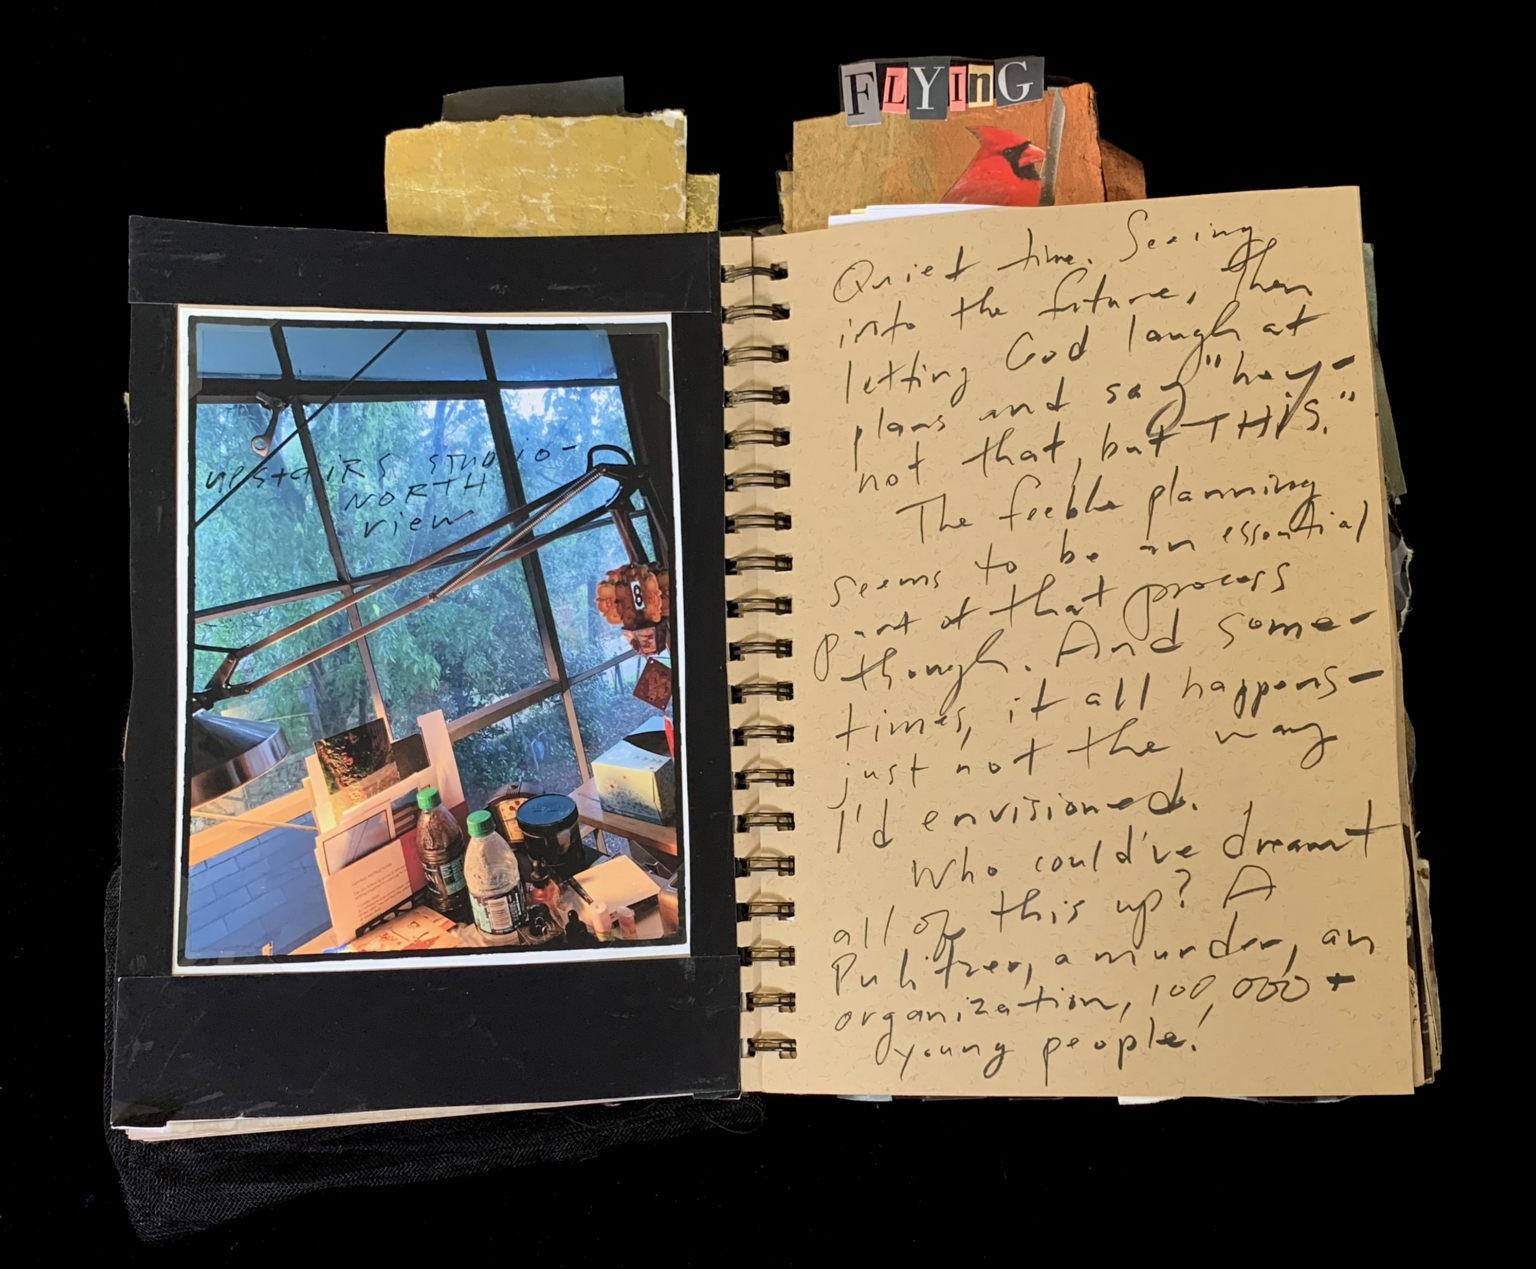 FLYInG
upstairs studio-
NORTH
view
8
Quiet time. Seeing
into the future, then
letting God laugh at
plans and say "hey-
not that, but THIS."
The feeble planning
seems to be an essential
part of that process
though. And some-
times, it all happens-
just not the way
I'd envisioned.
Who could've dreamt
all of this up? A
Pulitzer, a murder, an
organization, 100,000+
young people!